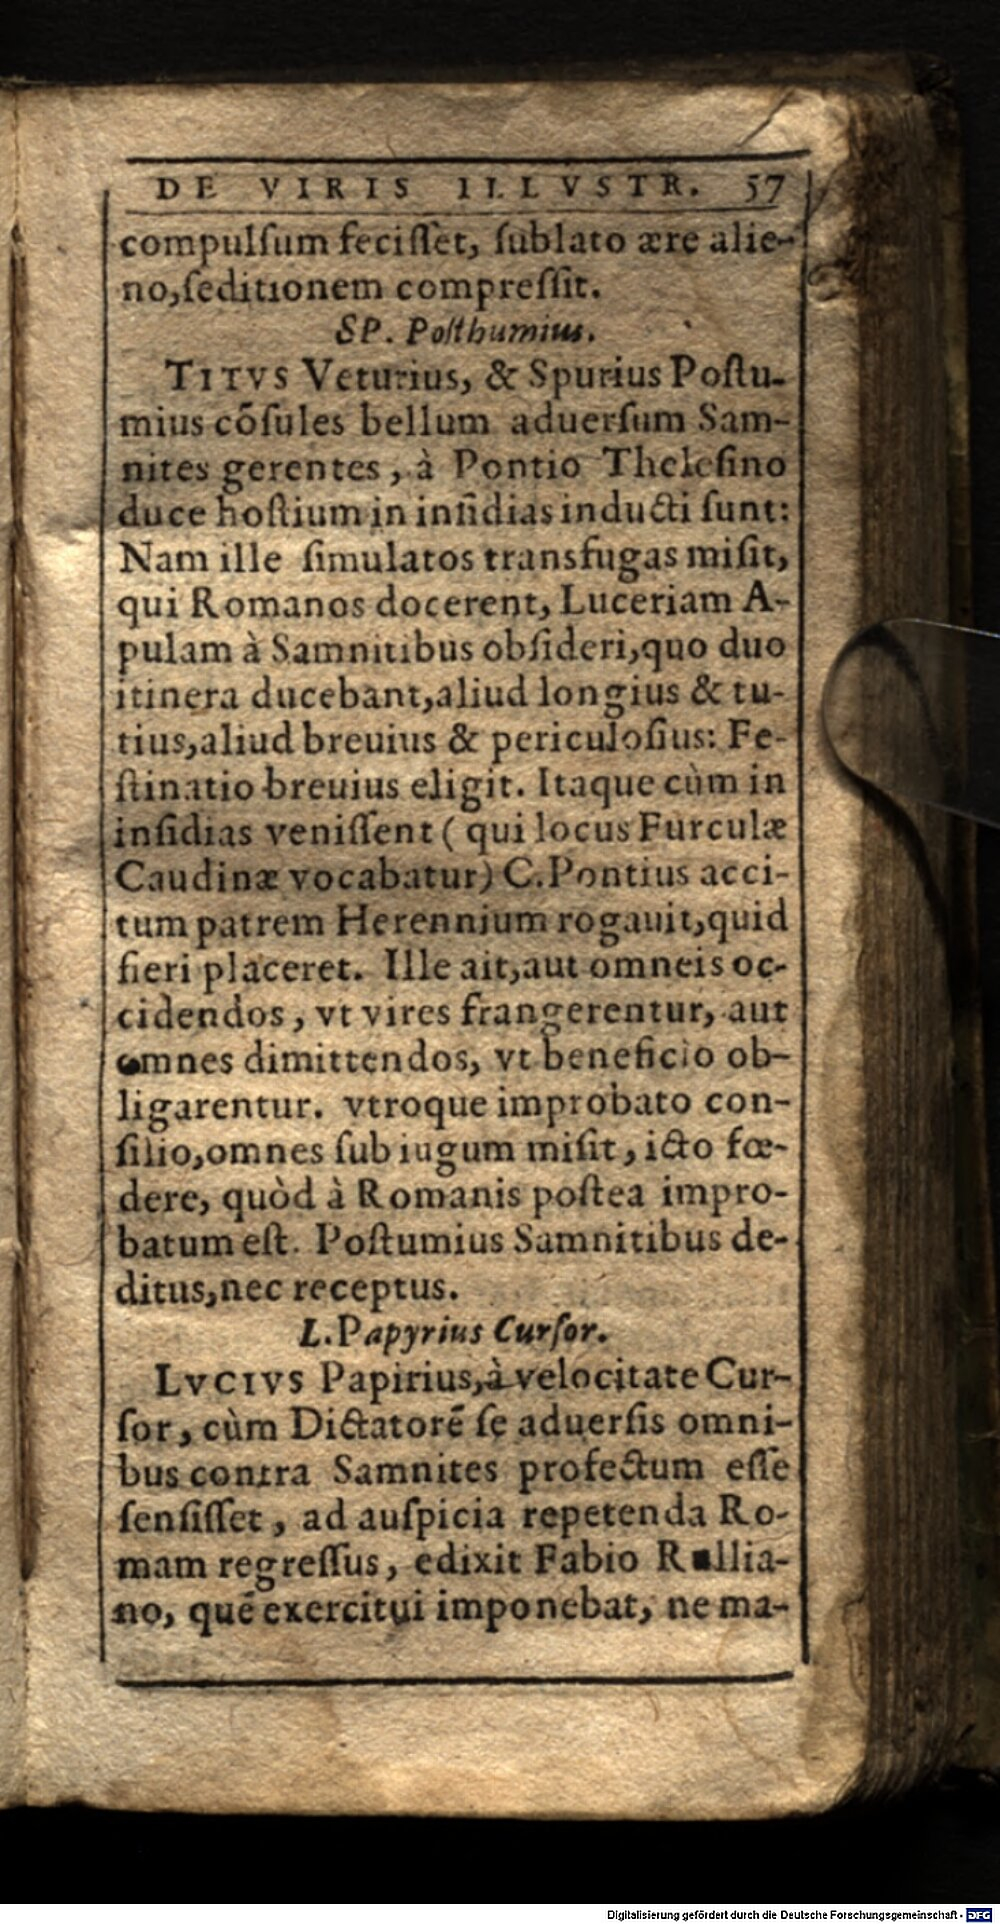 DE VIRIS ILLVSTR. 57
compulſum feciſſet, ſublato ære alie-
no,ſeditionem compreſſit.
SP. Poſthumius.
TITVS Veturius, & Spurius Poſtu-
mius cōſules bellum aduerſum Sam-
nites gerentes, à Pontio Theleſino
duce hoſtium in inſidias inducti ſunt:
Nam ille ſimulatos transfugas miſit,
qui Romanos docerent, Luceriam A-
pulam à Samnitibus obſideri,quo duo
itinera ducebant,aliud longius & tu-
tius,aliud breuius & periculoſius: Fe-
ſtinatio breuius eligit. Itaque cùm in
inſidias veniſſent ( qui locus Furculæ
Caudinæ vocabatur) C.Pontius acci-
tum patrem Herennium rogauit,quid
fieri placeret. Ille ait,aut omneis oc-
cidendos, vt vires frangerentur, aut
omnes dimittendos, vt beneficio ob-
ligarentur. vtroque improbato con-
ſilio,omnes ſub iugum miſit, icto fœ-
dere, quòd à Romanis poſtea impro-
batum eſt. Poſtumius Samnitibus de-
ditus,nec receptus.
L.Papyrius Curſor.
LVCIVS Papirius,à velocitate Cur-
ſor, cùm Dictatorē ſe aduerſis omni-
bus contra Samnites profectum eſſe
ſenſiſſet, ad auſpicia repetenda Ro-
mam regreſſus, edixit Fabio Rullia-
no, quē exercitui imponebat, ne ma-
Digitalisierung gefördert durch die Deutsche Forschungsgemeinschaft - DFG